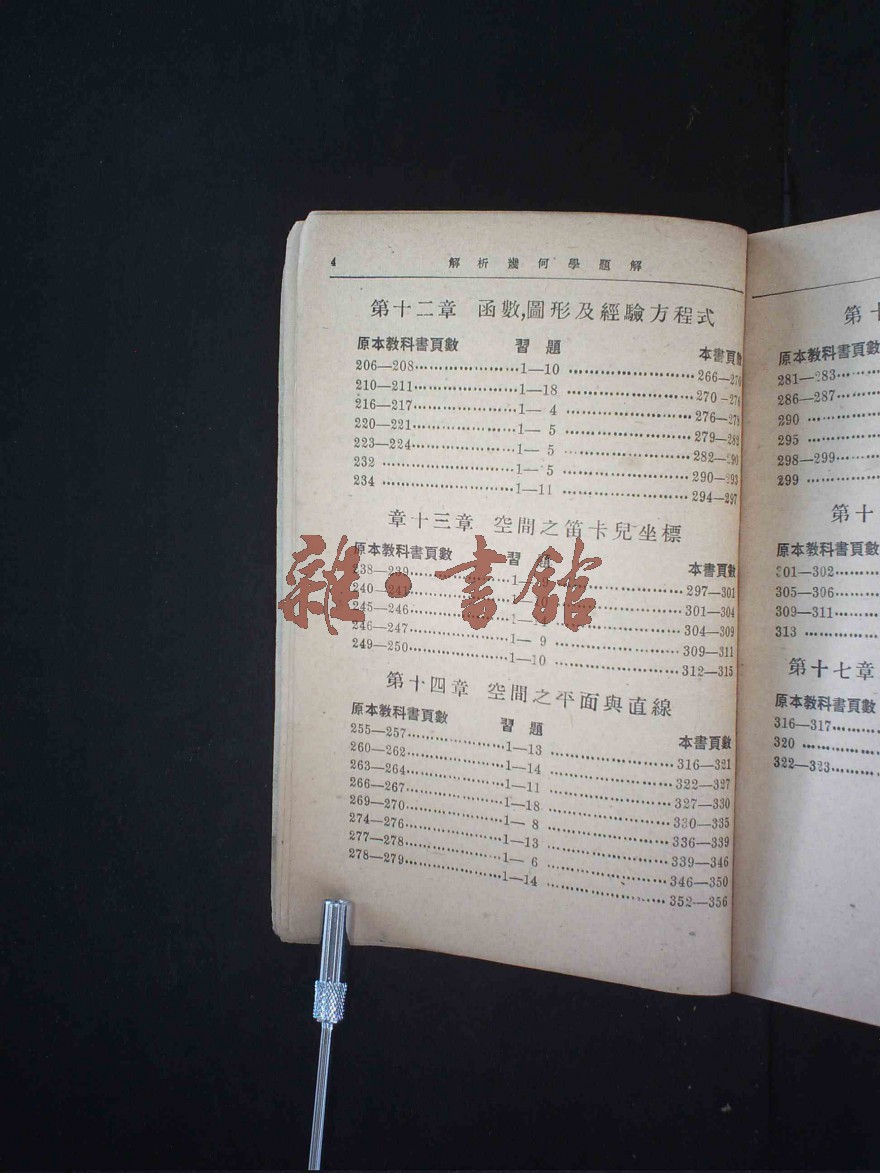 4 解析幾何學題解
第十二章 函數,圖形及經驗方程式
原本教科書頁數 習題 本書頁數
206—208 1—10 266—270
210—211 1—18 270-276
216—217 1—4 276—278
220—221 1—5 279—282
223—224 1—5 282—290
232 1—5 290—293
234 1—11 294—297
章十三章 空間之笛卡兒坐標
原本教科書頁數 習題 本書頁數
238—239 297—301
240—241 301—304
245—246 304—309
246—247 1—9 309—311
249—250 1—10 312—315
第十四章 空間之平面與直線
原本教科書頁數 習題 本書頁數
255—257 1—13 316—321
260—262 1—14 322—327
263—264 1—11 327—330
266—267 1—18 330—335
269—270 1—8 336—339
274—276 1—13 339—346
277—278 1—6 346—350
278—279 1—14 352—356
雜·書館
第十
原本教科書頁數
281—283
286—287
290
295
298—299
299
第十
原本教科書頁數
301—302
305—306
309—311
313
第十七章
原本教科書頁數
316—317
320
322—323